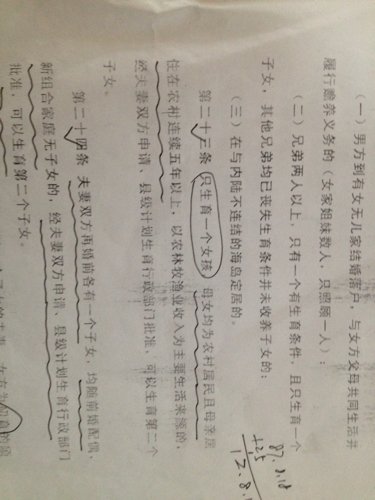 （一）男方到有女无儿家结婚落户，与女方父母共同生活并
履行赡养义务的（女家姐妹数人，只照顾一人）；
（二）兄弟两人以上，只有一个有生育条件，且只生育一个
子女，其他兄弟均已丧失生育条件并未收养子女的；
（三）在与内陆不连结的海岛定居的。
第二十三条 只生育一个女孩，母女均为农村居民且母亲居
住在农村连续五年以上，以农林牧渔业收入为主要生活来源的，
经夫妻双方申请、县级计划生育行政部门批准，可以生育第二个
子女。
第二十四条 夫妻双方再婚前各有一个子女，均随前婚配偶，
新组合家庭无子女的，经夫妻双方申请、县级计划生育行政部门
批准，可以生育第二个子女。
+2.5
12.8.